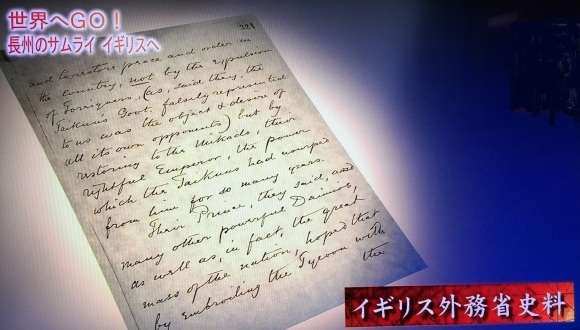 世界へGO！
長州のサムライ イギリスへ
324
and therefore peace and order in
the country, not by the expulsion
of Foreigners, (as, said they, the
Taikuns Govt. falsely represented
to us was the object & desire of
all its own opponents) but by
restoring to the Mikado, their
rightful Emperor, the power
which the Taikuns had usurped
from him for so many years.
Their Prince, they said, and
many other powerful Daimios,
as well as, in fact, the great
mass of the nation, hoped that
by embroiling the Tycoon with
the
イギリス外務省史料